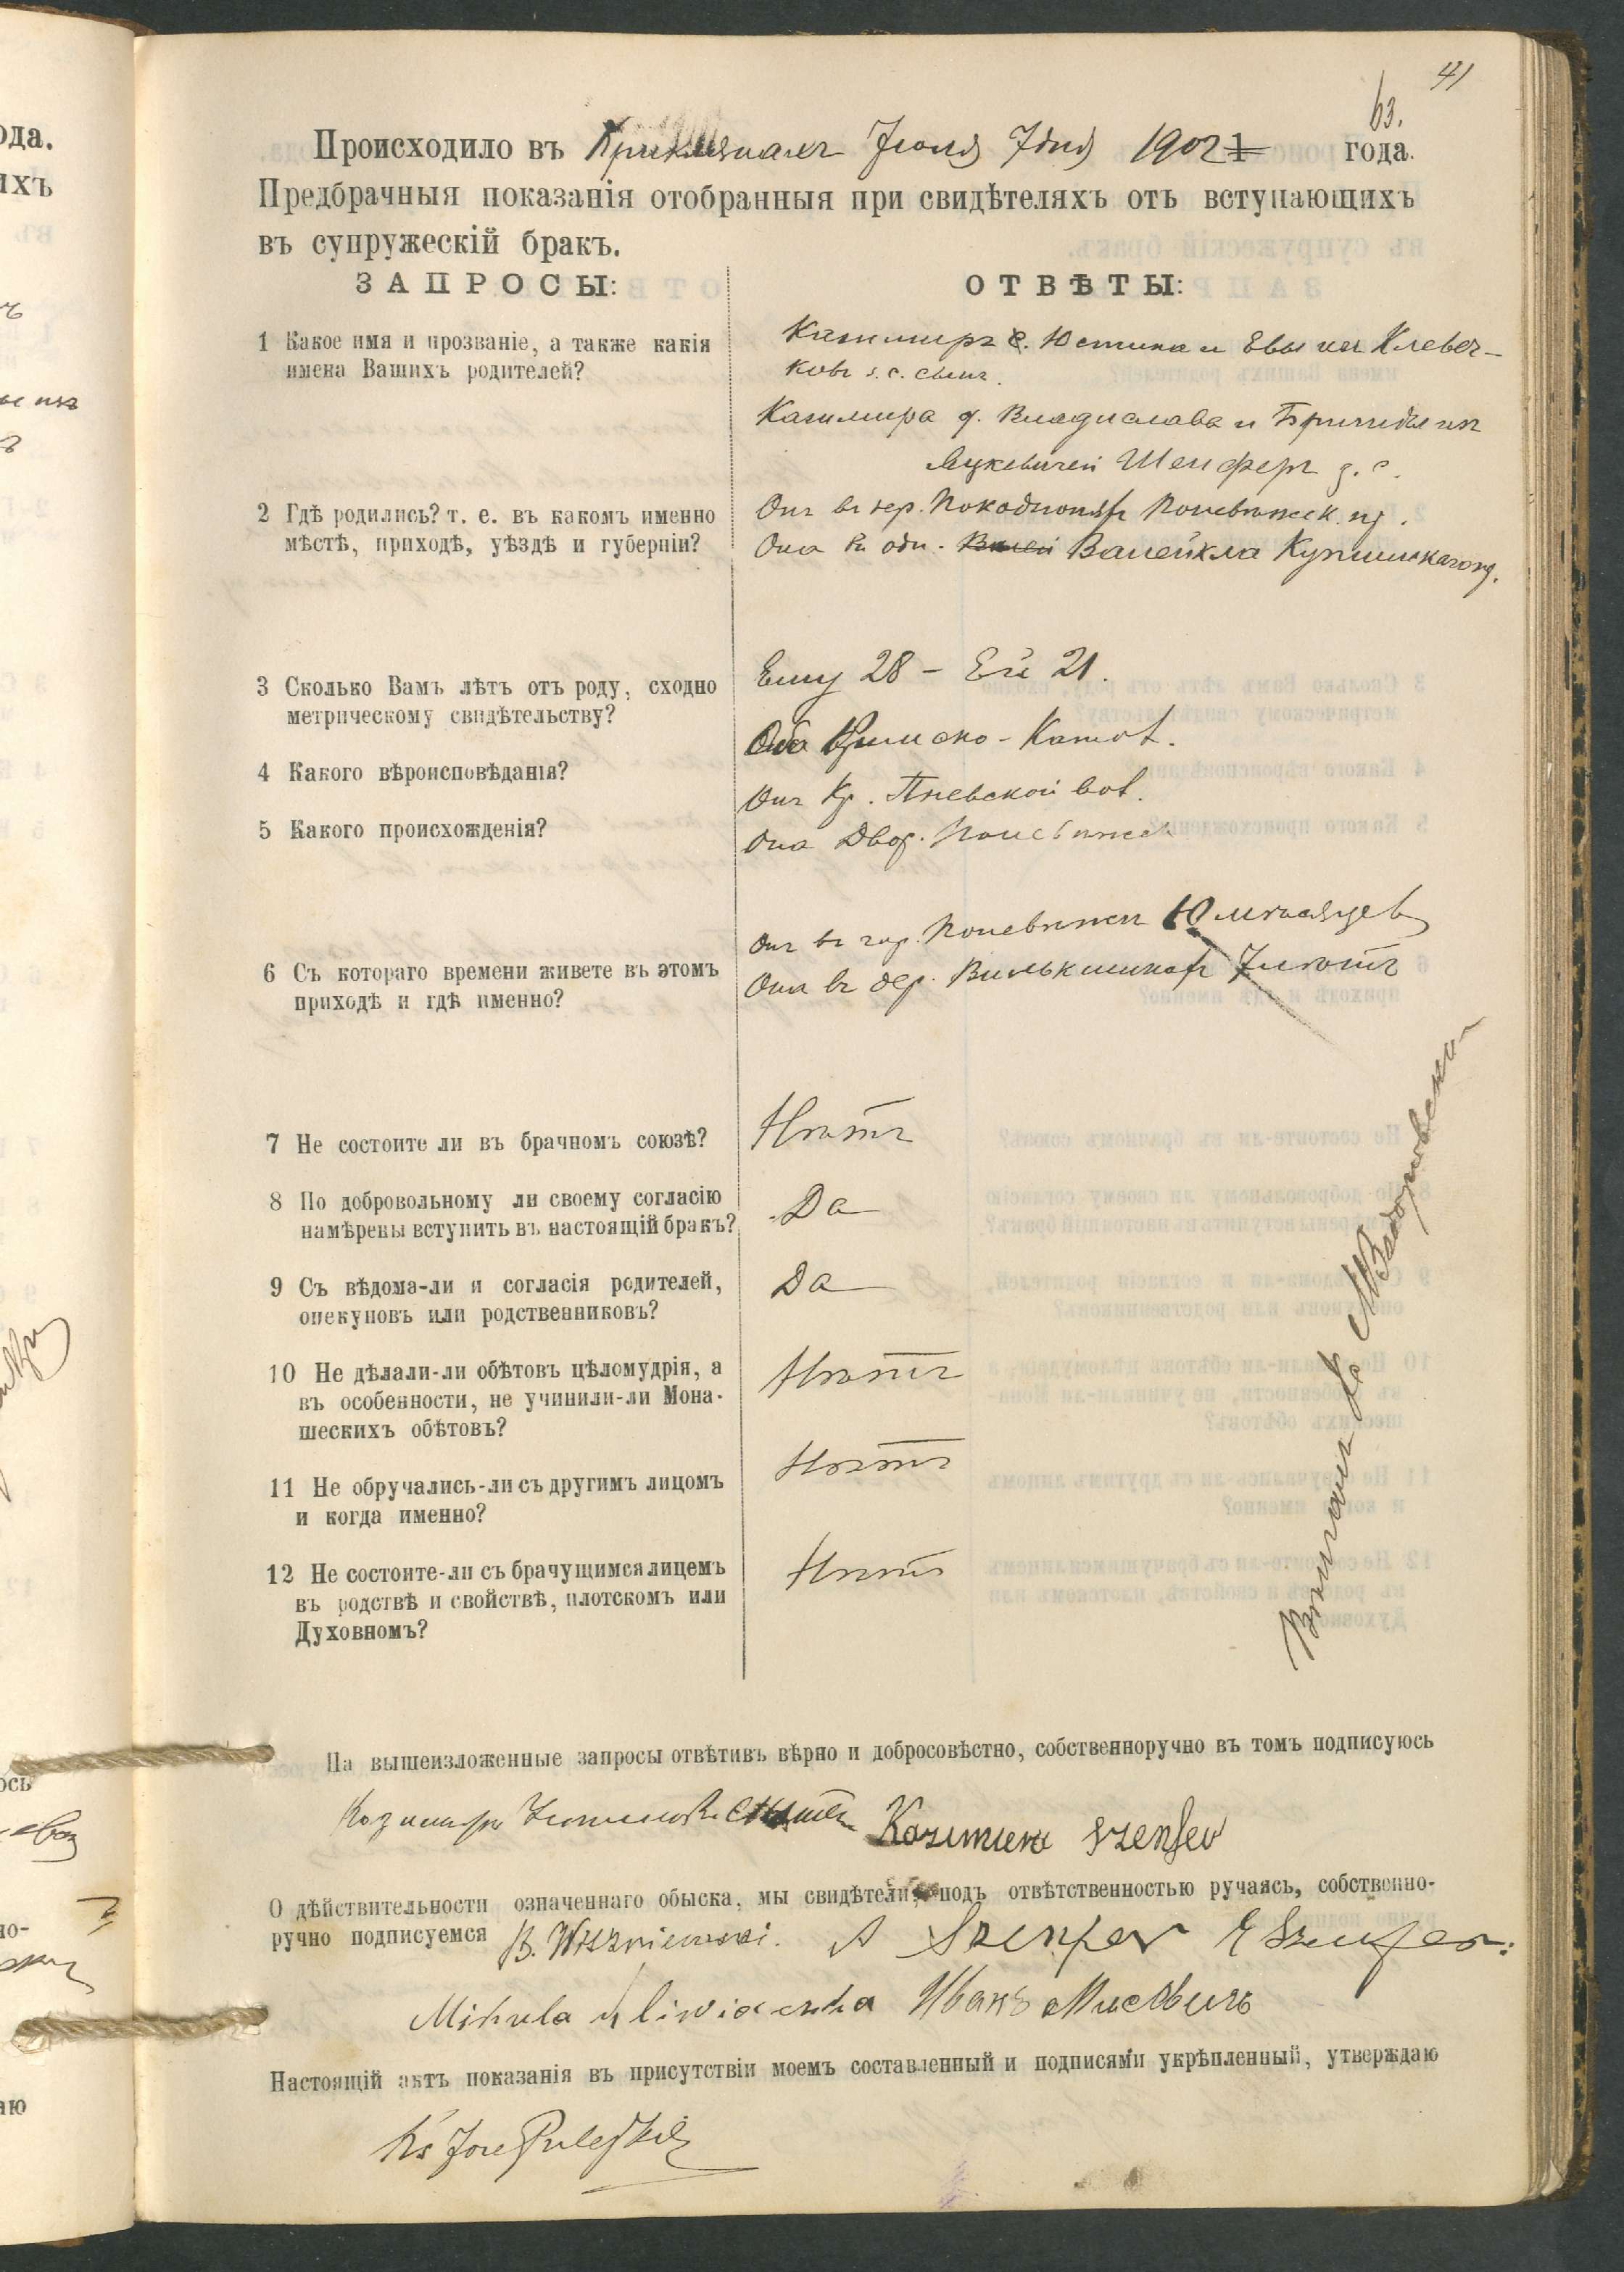 41
63.
Происходило въ Іюля 7 дня 1902 года.
Предбрачныя показанія отобранныя при свидѣтеляхъ отъ вступающихъ
въ супружескій бракъ.
ЗАПРОСЫ: ОТВѢТЫ:
1 Какое имя и прозваніе, а также какія
имена Вашихъ родителей?
Казимиръ с. Юстина и Евы изъ Клевеч-
ковъ з. с. сынъ.
Казимира д. Владислава и Бригиды изъ
Шенферъ з. с.
2 Гдѣ родились? т. е. въ какомъ именно
мѣстѣ, приходѣ, уѣздѣ и губерніи?
Онъ въ Поневѣжск.
Она въ Валейкла
3 Сколько Вамъ лѣтъ отъ роду, сходно
метрическому свидѣтельству?
Ему 28 – Ей 21.
4 Какого вѣроисповѣданія?
Оба Римско-Катол.
5 Какого происхожденія?
Онъ Кр. вол.
Она Двор. Поневѣжск
6 Съ котораго времени живете въ этомъ
приходѣ и гдѣ именно?
Онъ въ гор. Поневѣжѣ 10 мѣсяцев
Она въ дер. 7 лѣтъ
7 Не состоите ли въ брачномъ союзѣ?
Нѣтъ
8 По добровольному ли своему согласію
намѣрены вступить въ настоящій бракъ?
Да
9 Съ вѣдома-ли и согласія родителей,
опекуновъ или родственниковъ?
Да
10 Не дѣлали-ли обѣтовъ цѣломудрія, а
въ особенности, не учинили-ли Мона-
шескихъ обѣтовъ?
Нѣтъ
11 Не обручались-ли съ другимъ лицомъ
и когда именно?
Нѣтъ
12 Не состоите-ли съ брачущимся лицемъ
въ родствѣ и свойствѣ, плотскомъ или
Духовномъ?
Нѣтъ
На вышеизложенные запросы отвѣтивъ вѣрно и добросовѣстно, собственноручно въ томъ подписуюсь
Казимиръ Kazimiera Szenfer
О дѣйствительности означеннаго обыска, мы свидѣтели, подъ отвѣтственностью ручаясь, собственно-
ручно подписуемся B. Wiszniewski. A Szenfer E Szenfer.
Иванъ
Настоящій актъ показанія въ присутствіи моемъ составленный и подписями укрѣпленный, утверждаю